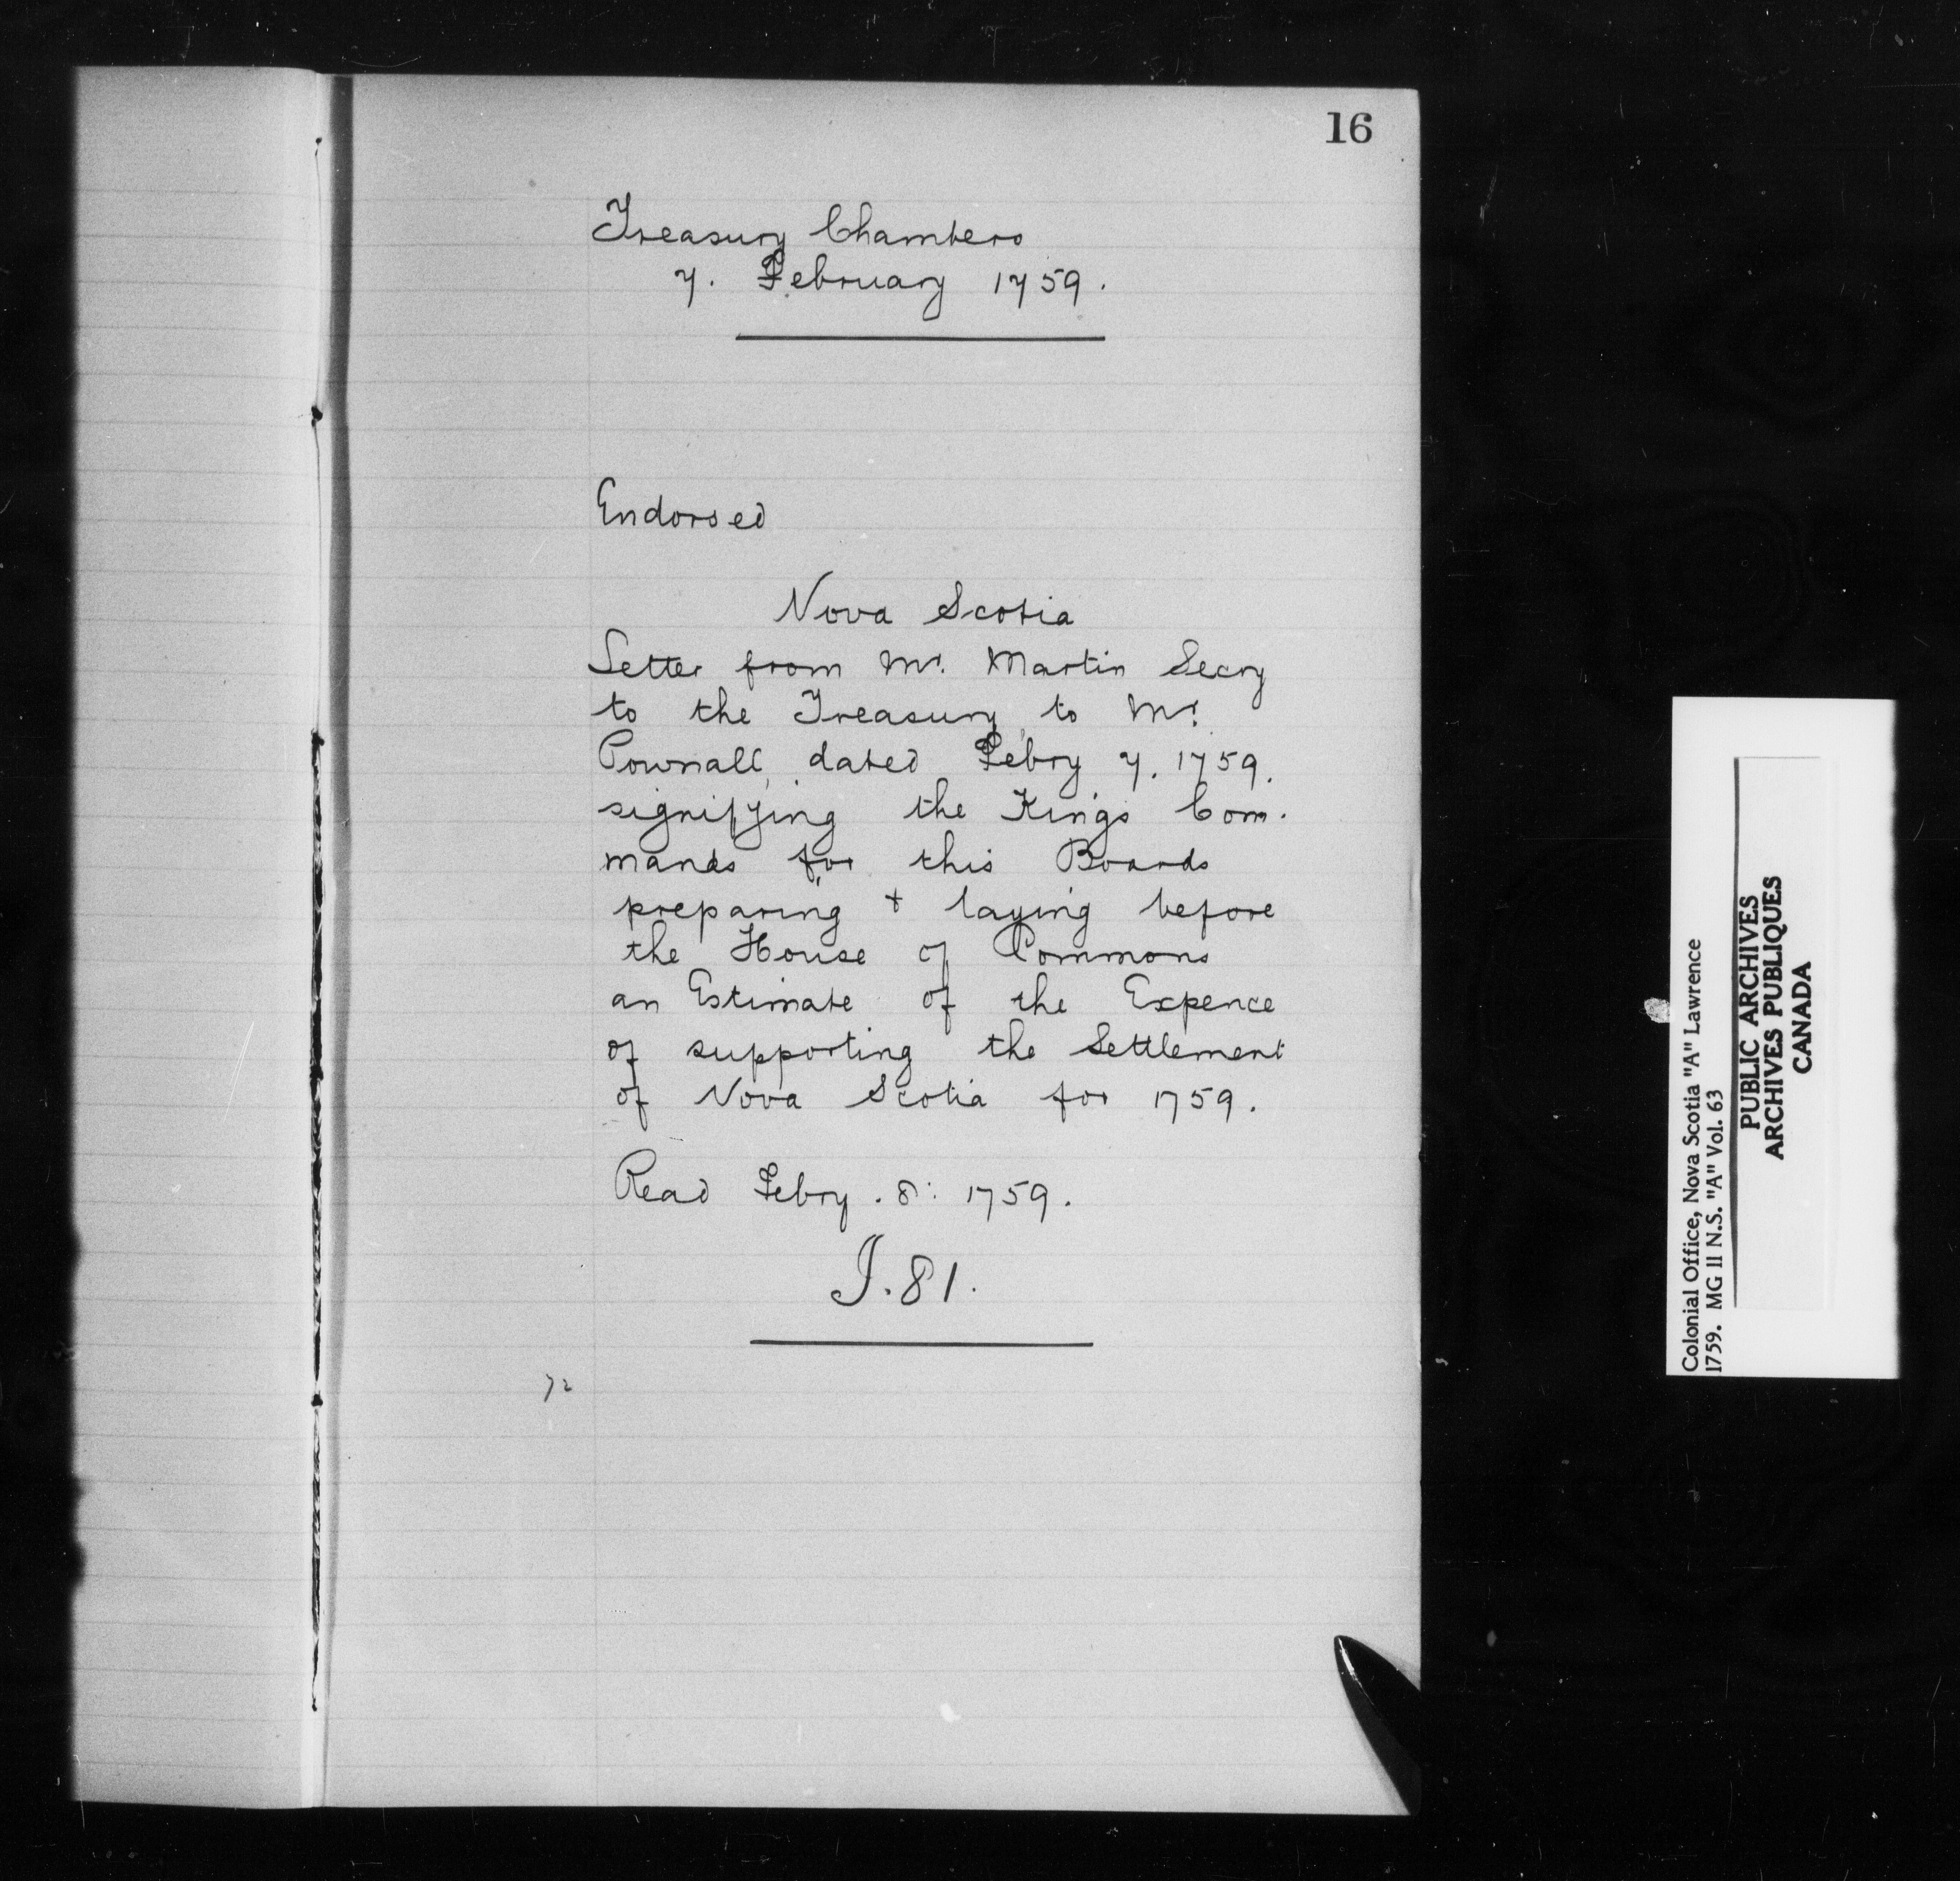 16
Treasury Chambers
7. February 1759.
Endorsed
Nova Scotia
Letter from Mr. Martin Secry
to the Treasury, to Mr.
Pownall, dated Febry 7. 1759.
signifying the King's Com-
mands for this Boards
preparing + laying before
the House of Commons
an Estimate of the Expence
of supporting the Settlement
of Nova Scotia for 1759.
Read Febry. 8: 1759.
I. 81.
72
Colonial Office, Nova Scotia "A" Lawrence
1759. MG 11 N.S. "A" Vol. 63
PUBLIC ARCHIVES
ARCHIVES PUBLIQUES
CANADA